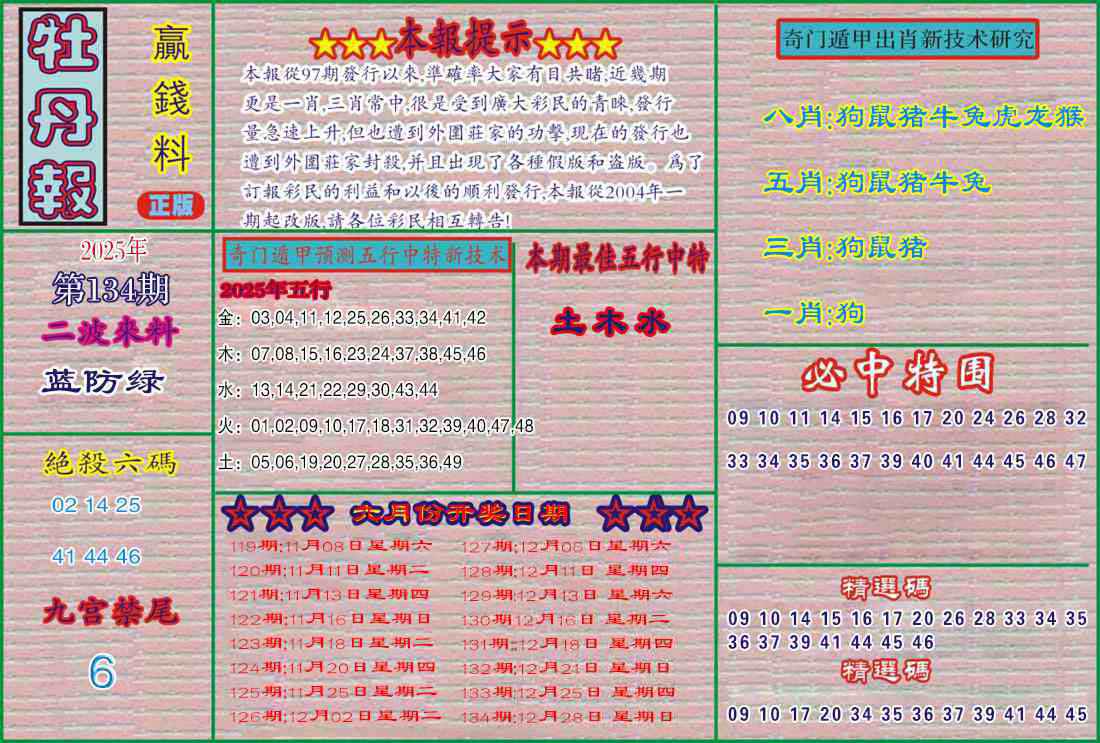 牡丹報
贏錢料
正版
★★★本報提示★★★
本報從97期發行以來,準確率大家有目共睹,近幾期
更是一肖,三肖常中,很是受到廣大彩民的青睞,發行
量急速上升,但也遭到外圍莊家的功擊,現在的發行也
遭到外圍莊家封殺,并且出現了各種假版和盗版。爲了
訂報彩民的利益和以後的順利發行,本報從2004年一
期起改版,請各位彩民相互轉告!
奇门遁甲出肖新技术研究
八肖:狗鼠猪牛兔虎龙猴
五肖:狗鼠猪牛兔
三肖:狗鼠猪
一肖:狗
2025年
第134期
二波來料
蓝防绿
奇门遁甲预测五行中特新技术
2025年五行
金：03,04,11,12,25,26,33,34,41,42
木：07,08,15,16,23,24,37,38,45,46
水：13,14,21,22,29,30,43,44
火：01,02,09,10,17,18,31,32,39,40,47,48
土：05,06,19,20,27,28,35,36,49
本期最佳五行中特
土木水
必中特围
09 10 11 14 15 16 17 20 24 26 28 32
33 34 35 36 37 39 40 41 44 45 46 47
絕殺六碼
02 14 25
41 44 46
九宫禁尾
6
☆☆☆ 六月份开奖日期 ☆☆☆
119期:11月08日星期六 127期:12月05日星期六
120期:11月11日星期二 128期:12月11日星期四
121期:11月13日星期四 129期:12月13日星期六
122期:11月16日星期日 130期:12月16日星期二
123期:11月18日星期二 131期:12月18日星期四
124期:11月20日星期四 132期:12月21日星期日
125期:11月25日星期二 133期:12月25日星期四
126期:12月02日星期二 134期:12月28日星期日
精選碼
09 10 14 15 16 17 20 26 28 33 34 35
36 37 39 41 44 45 46
精選碼
09 10 17 20 34 35 36 37 39 41 44 45